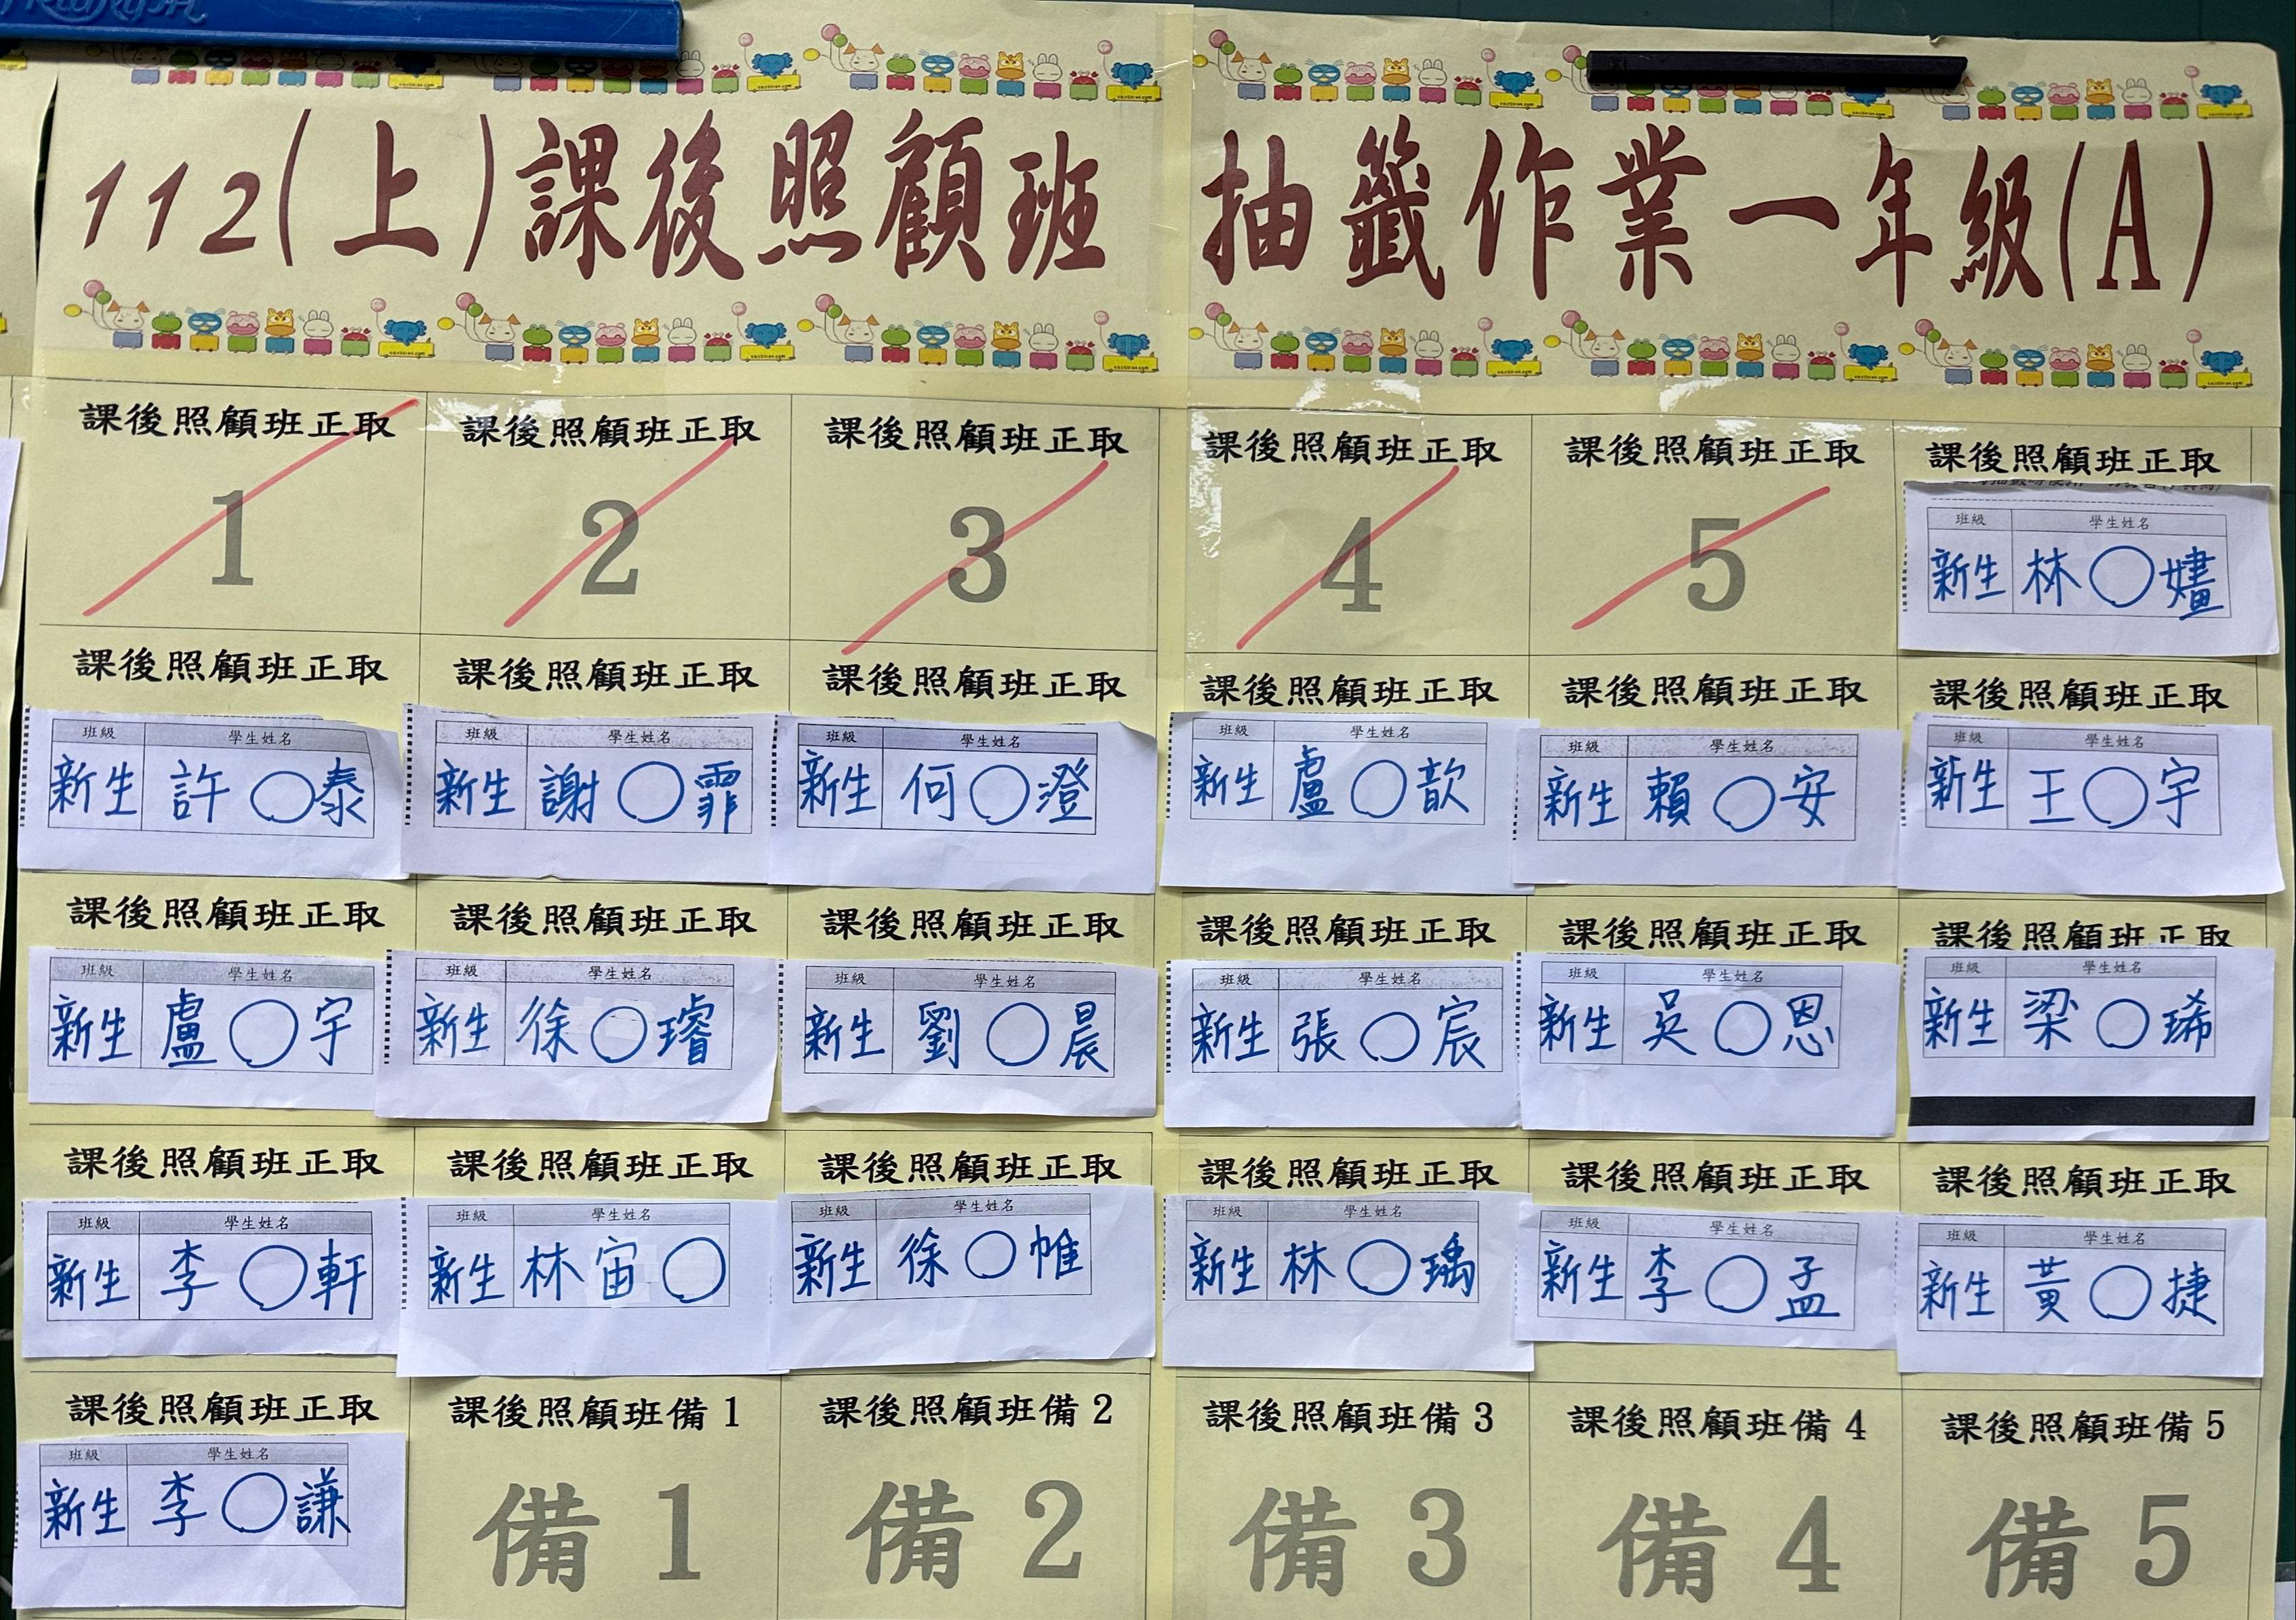 Triumph
112(上)課後照顧班 抽籤作業一年級(A)
課後照顧班正取 課後照顧班正取 課後照顧班正取 課後照顧班正取 課後照顧班正取 課後照顧班正取
1 2 3 4 5
班級 學生姓名
新生 林○嫿
課後照顧班正取 課後照顧班正取 課後照顧班正取 課後照顧班正取 課後照顧班正取 課後照顧班正取
班級 學生姓名 班級 學生姓名 班級 學生姓名 班級 學生姓名 班級 學生姓名 班級 學生姓名
新生 許○泰 新生 謝○霏 新生 何○澄 新生 盧○歆 新生 賴○安 新生 王○宇
課後照顧班正取 課後照顧班正取 課後照顧班正取 課後照顧班正取 課後照顧班正取 課後照顧班正取
班級 學生姓名 班級 學生姓名 班級 學生姓名 班級 學生姓名 班級 學生姓名 班級 學生姓名
新生 盧○宇 新生 徐○璿 新生 劉○晨 新生 張○宸 新生 吳○恩 新生 梁○琋
課後照顧班正取 課後照顧班正取 課後照顧班正取 課後照顧班正取 課後照顧班正取 課後照顧班正取
班級 學生姓名 班級 學生姓名 班級 學生姓名 班級 學生姓名 班級 學生姓名 班級 學生姓名
新生 李○軒 新生 林宙○ 新生 徐○帷 新生 林○瑀 新生 李○孟 新生 黃○捷
課後照顧班正取 課後照顧班備1 課後照顧班備2 課後照顧班備3 課後照顧班備4 課後照顧班備5
班級 學生姓名
新生 李○謙 備1 備2 備3 備4 備5